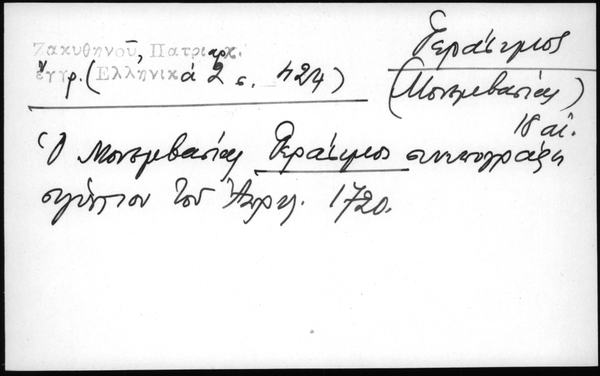 Γεράσιμος
(Μονεμβασίας)
18 αἰ.
Ζακυθηνοῦ, Πατριαρχ.
ἔγγρ. (Ἑλληνικὰ 2 σ. 424)
Ὁ Μονεμβασίας Γεράσιμος συνυπογράφει
σιγίλλιον τοῦ Ἀπρ. 1720.